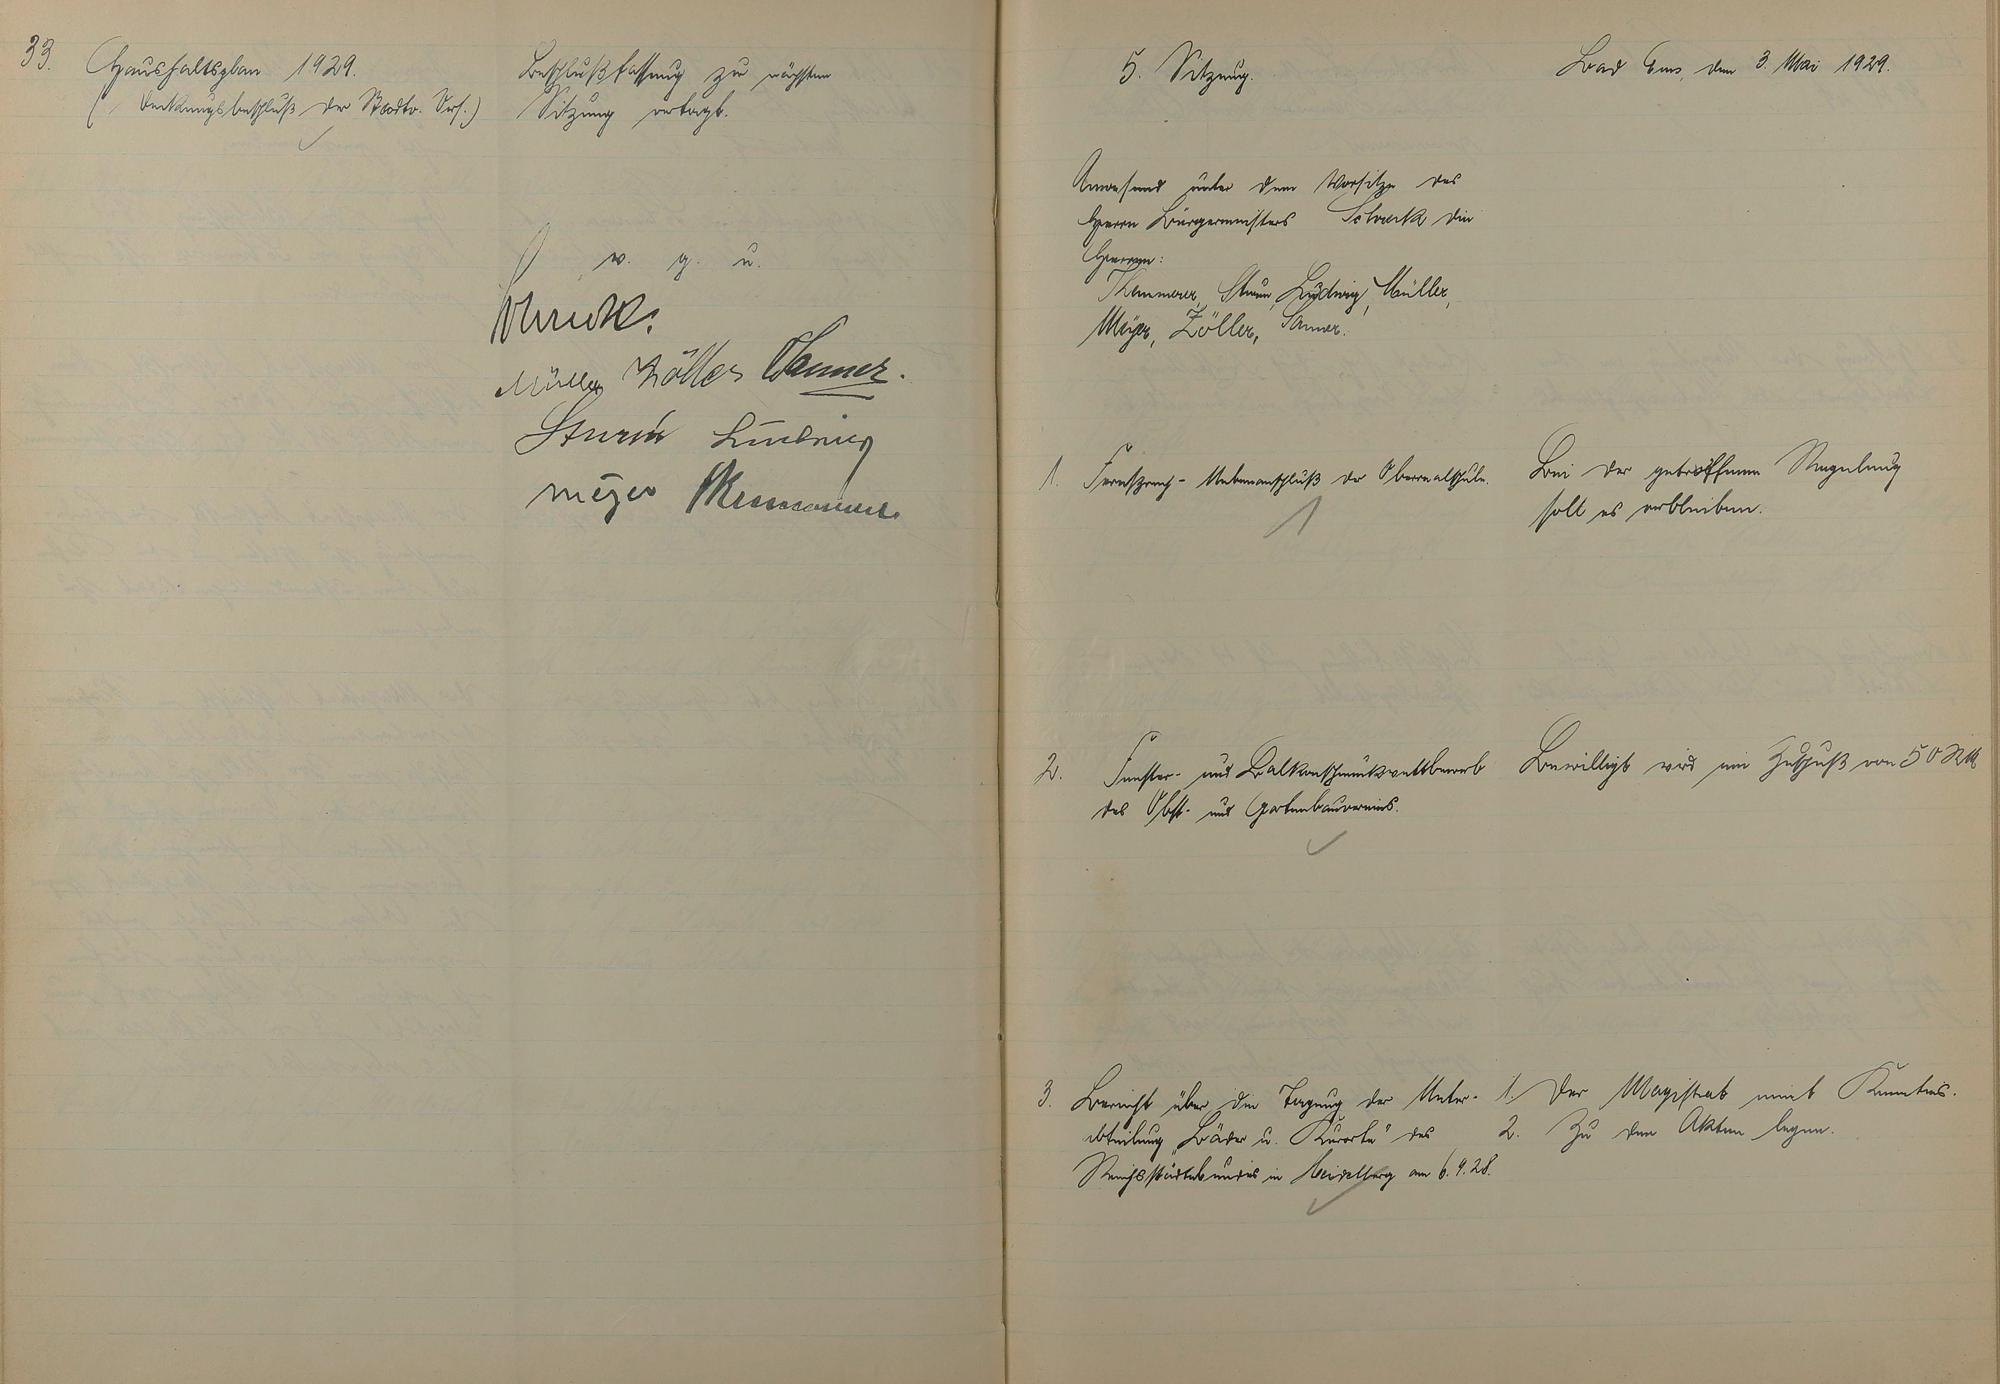 33. Haushaltsplan 1929.
(Deckungsbeschluß der Stadtv. Vers.)
Beschlußfassung zu nächsten
Sitzung vertagt.
v. g. u.
Schreck.
Müller Zöller Sanner.
Sturm Ludwig
Meyer Themmerer
5. Sitzung.
Bad Ems, den 3. Mai 1929.
Anwesend unter dem Vorsitze des
Herrn Bürgermeisters Schreck die
Herren:
Themmerer, Sturm, Ludwig, Müller,
Meyer, Zöller, Sanner.
1. Fernsprech-Nebenanschluß der Oberrealschule.
Bei der getroffenen Regelung
soll es verbleiben.
2. Fenster- und Balkonschmuckwettbewerb
des Obst- und Gartenbauvereins.
Bewilligt wird ein Zuschuß von 50 RM
3. Bericht über die Tagung der Unter-
abteilung „Bäder u. Kurorte" des
Reichsstädtebundes in Heidelberg am 6.9.28.
1. Der Magistrat nimt Kenntnis.
2. Zu den Akten legen.